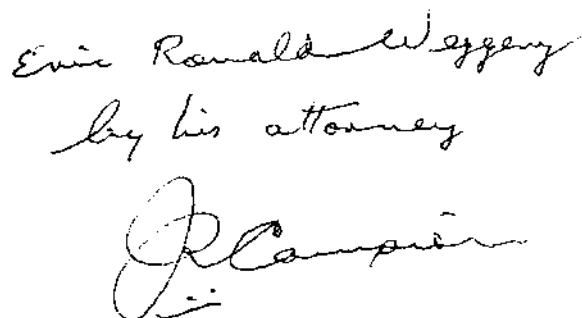 Eric Ronald Weggery
by his attorney
JR Campion